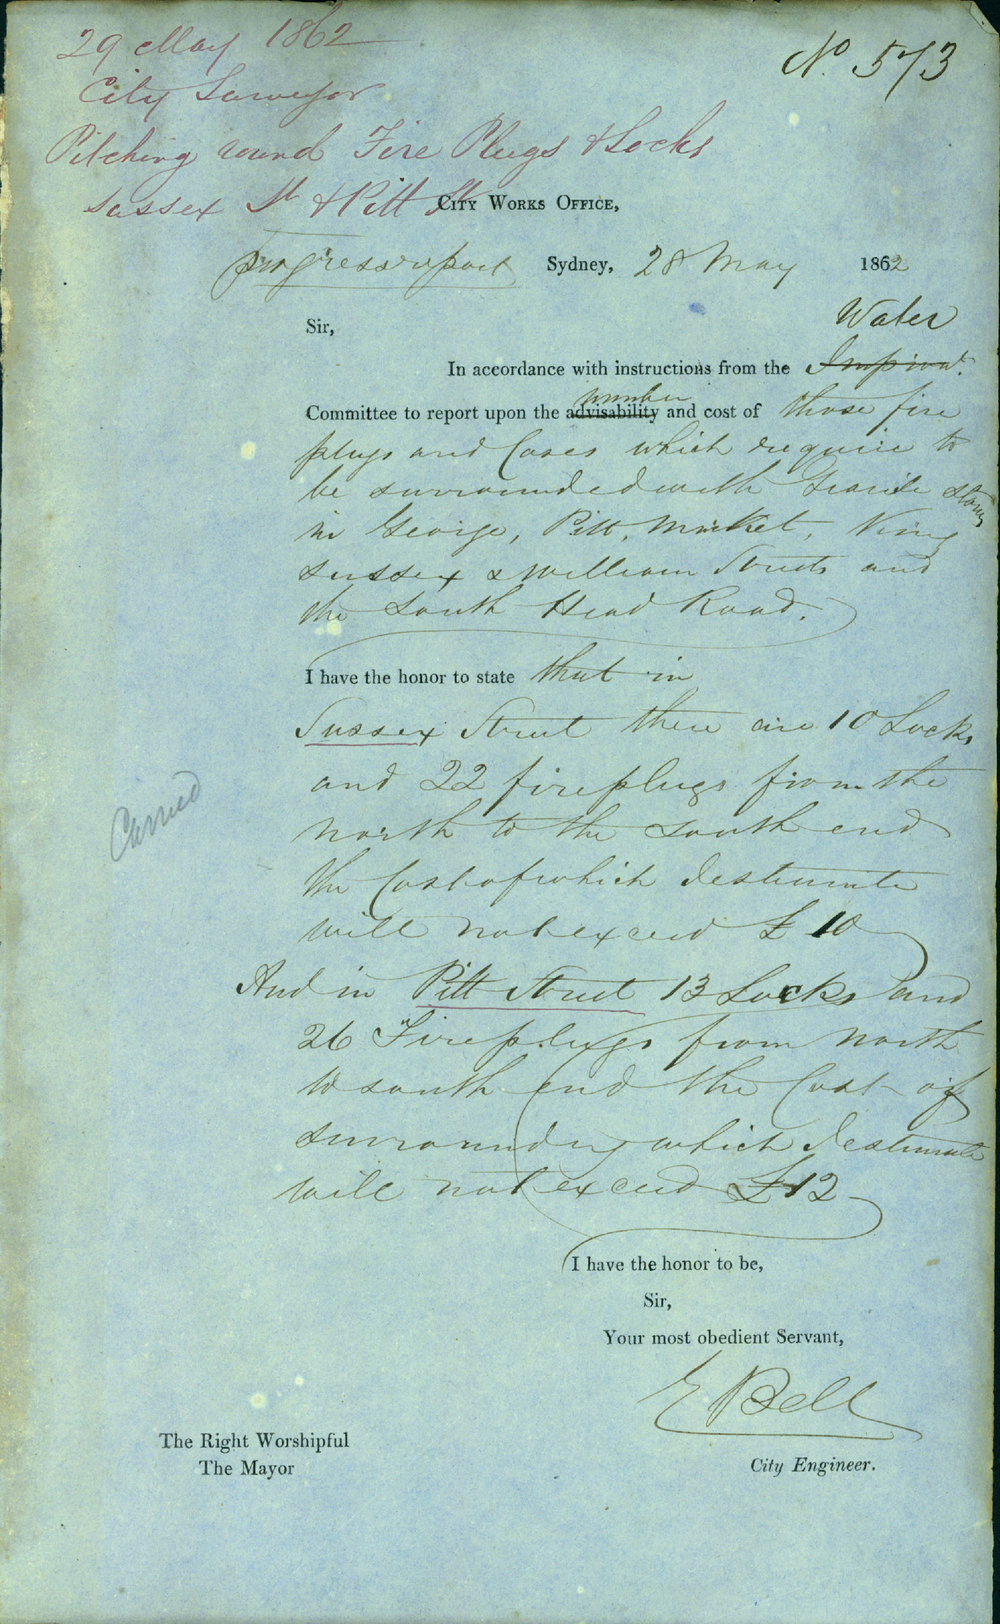 29 May 1862
No. 573
City Surveyor
Pitching round Fire Plugs & Locks
Sussex St & Pitt St
CITY WORKS OFFICE,
Progress report Sydney, 28 May 1862
Sir,
Water
In accordance with instructions from the Improvt.
number
Committee to report upon the advisability and cost of those fire
plugs and Cases which require to
be surrounded with Granite stones
in George, Pitt, Market, King
Sussex & William Streets and
the South Head Road.
I have the honor to state that in
Sussex Street there are 10 Locks
and 22 fireplugs from the
north to the south end
the Cost of which I estimate
will not exceed £10
And in Pitt Street 13 Locks and
26 Fireplugs from north
to south end the Cost of
surrounding which I estimate
will not exceed £12
Carried
I have the honor to be,
Sir,
Your most obedient Servant,
E Bell
The Right Worshipful
The Mayor
City Engineer.